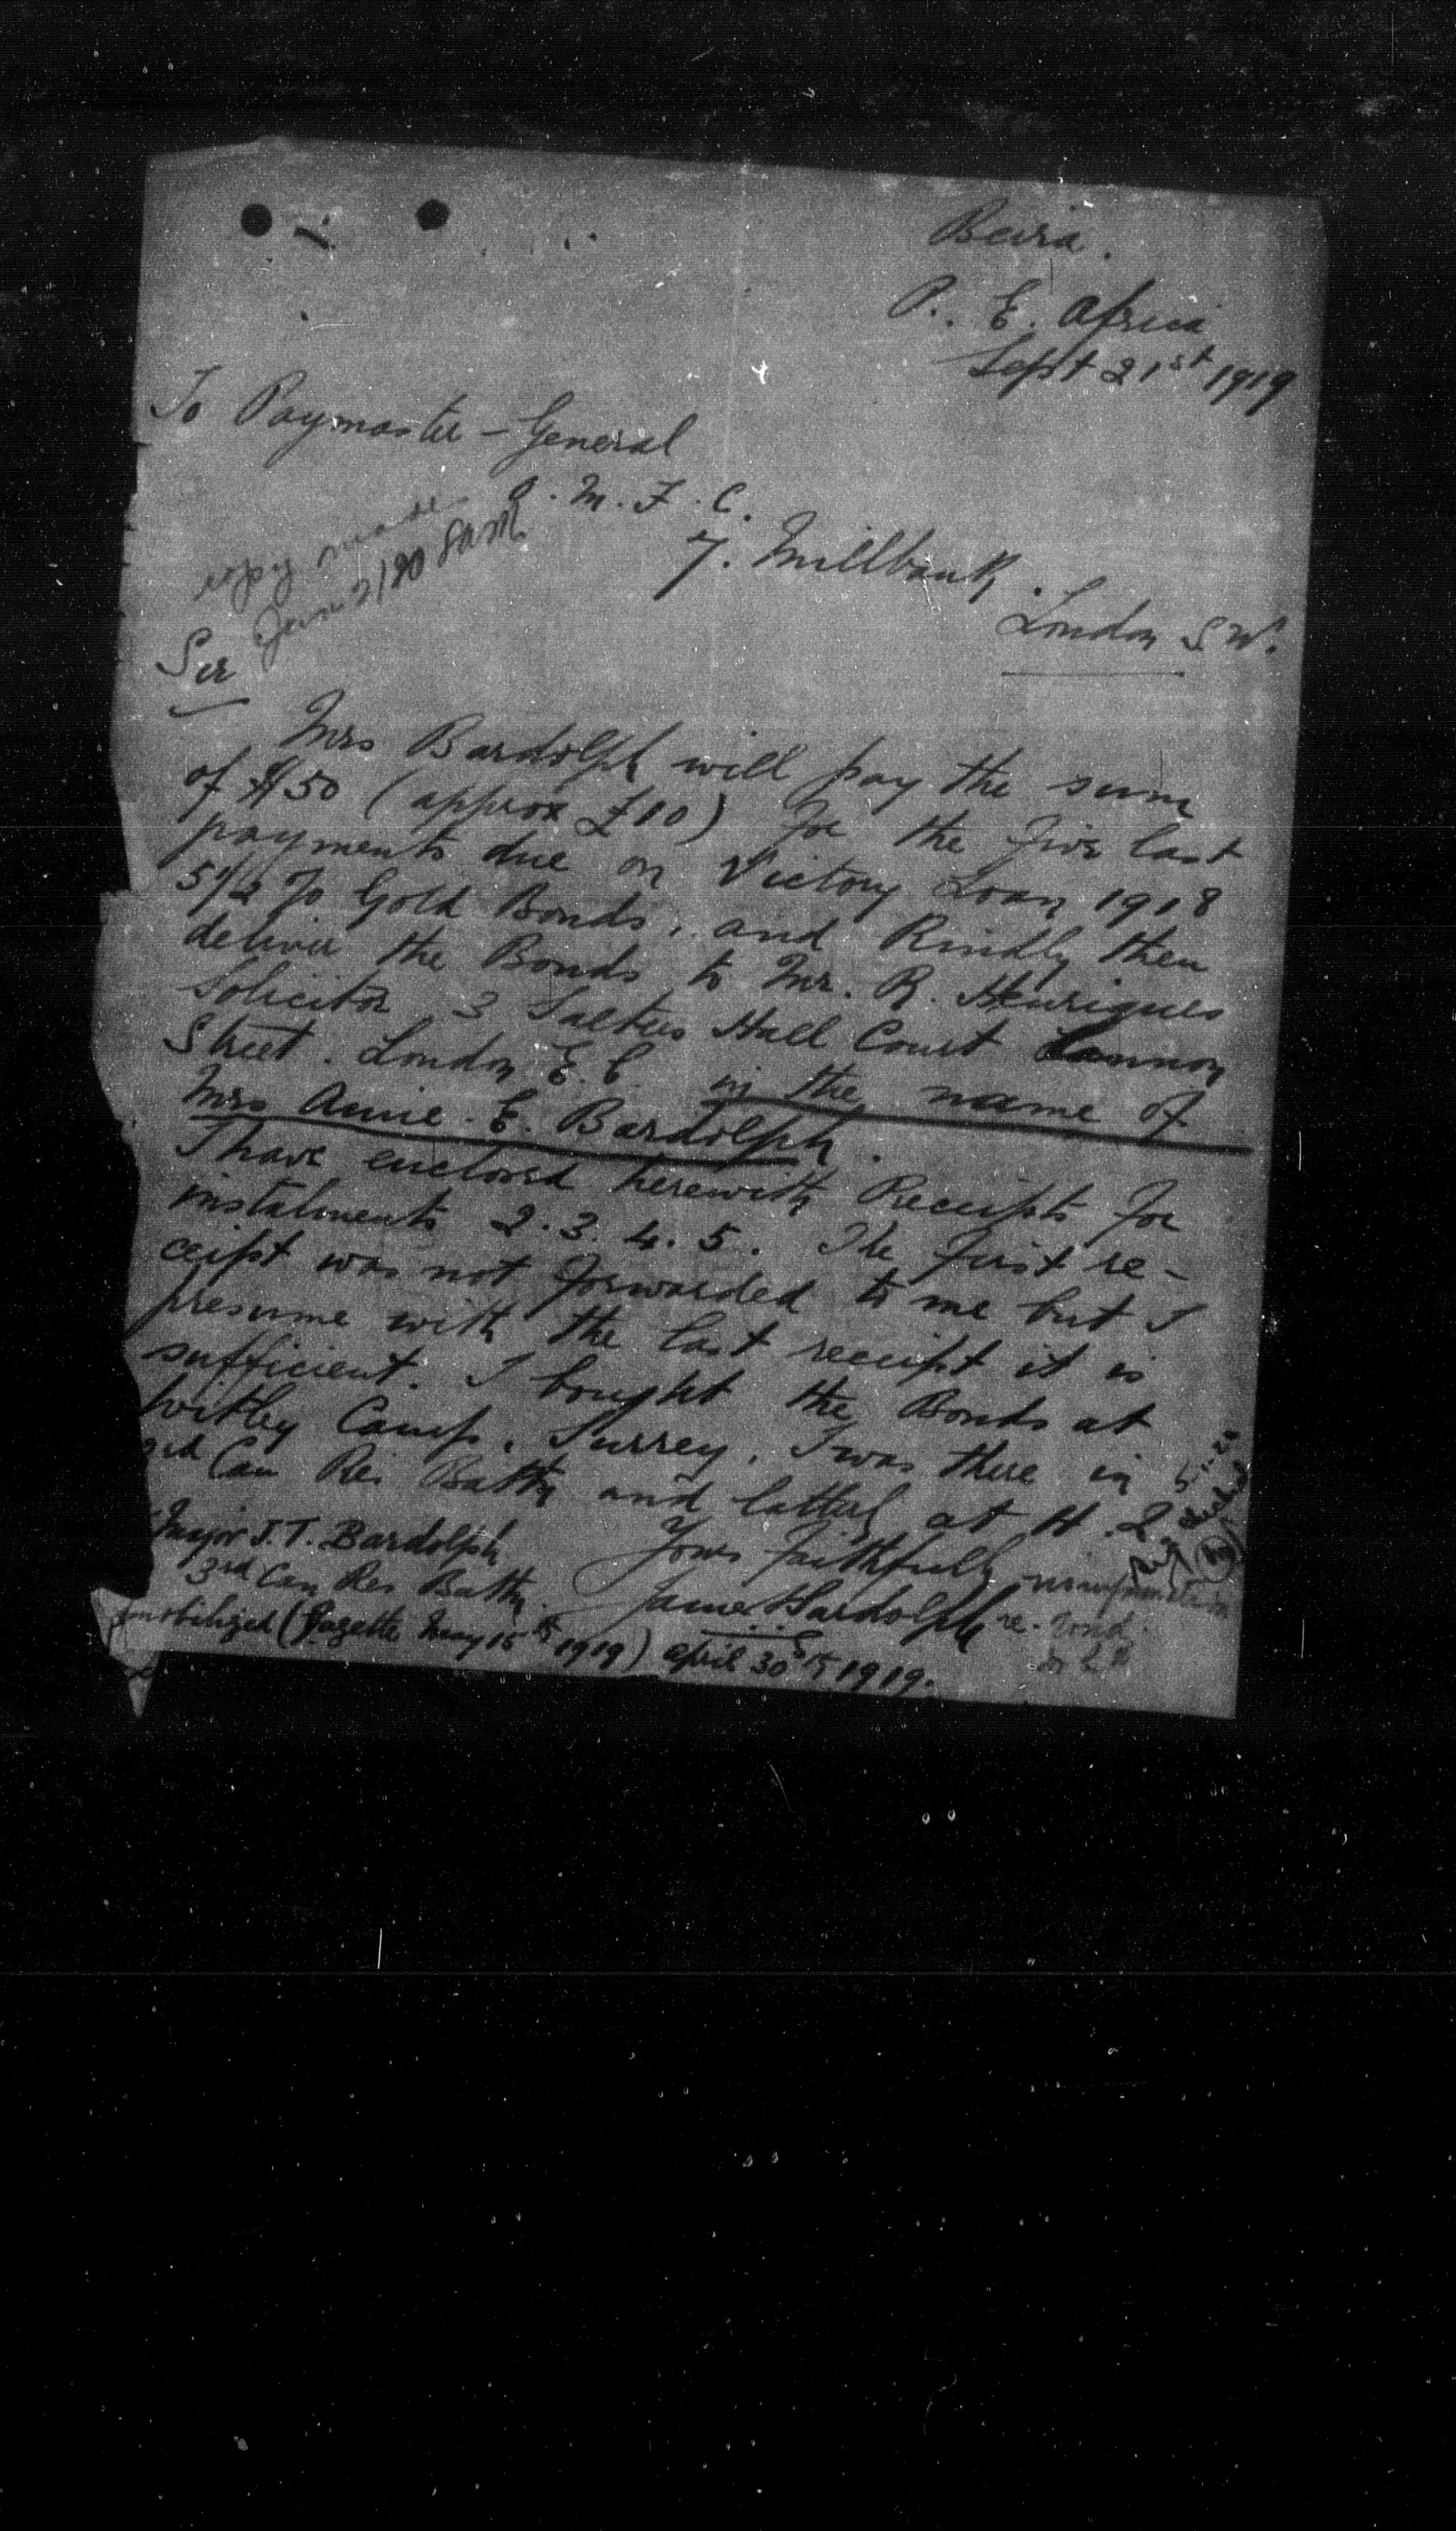 Beira.
P. E. Africa
Sept 21st 1919
To Paymaster - General
O. M. F. C.
7. Millbank.
London S.W.
copy made
Jan 2/20
Sir
Mrs Bardolph will pay the sum
of $50 (approx £10) for the five last
payments due on Victory Loan 1918
5 1/2 % Gold Bonds, and Kindly then
deliver the Bonds to Mr. R. Henriques
Solicitor 3 Salters Hall Court Cannon
Street. London E.C. in the name of
Mrs Annie. E. Bardolph.
I have enclosed herewith Receipts for
instalments 2. 3. 4. 5. The first re-
ceipt was not forwarded to me but I
presume with the last receipt it is
sufficient. I bought the Bonds at
Witley Camp, Surrey, I was there in
Can Res Battn and latterly at H. Q.
Yours Faithfully
Major J. T. Bardolph
3rd Can Res Battn.
(Gazette May 15th 1919) April 30th 1919.